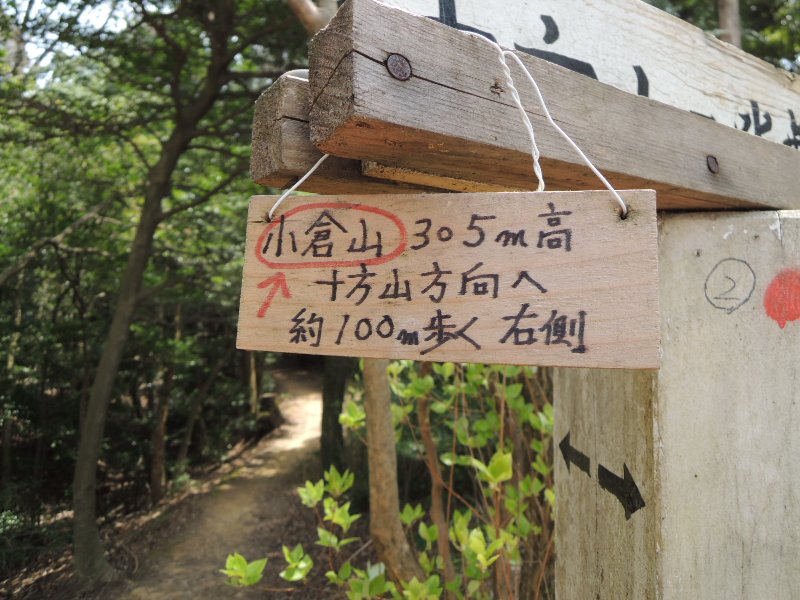 小倉山 305m高
十方山方向へ
約100m歩く右側
②